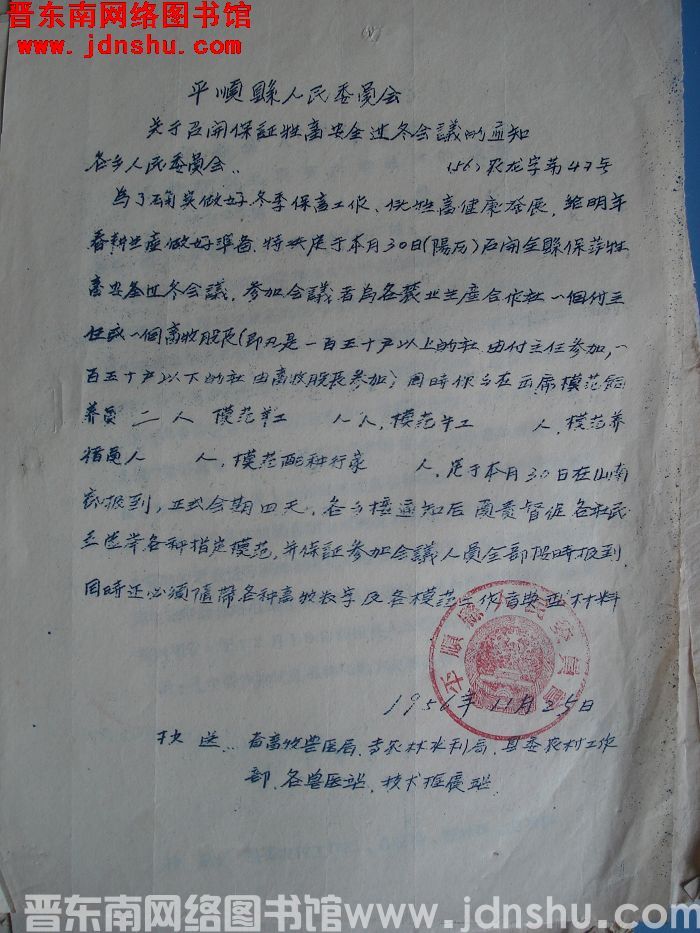 晋东南网络图书馆
www.jdnshu.com
平順縣人民委員会
关于召開保証牲畜安全过冬会議的通知
各乡人民委員会：
(56)农龙字第47号
为了确实做好冬季保畜工作、使牲畜健康發展，給明年
春耕生產做好準备，特决定于本月30日(陽历)召開全縣保護牲
畜安全过冬会議，参加会議者为各農业生產合作社一個付主
任或一個畜牧股長(即凡是一百五十户以上的社由付主任参加，一
百五十户以下的社由畜牧股長参加)同時你乡在出席模范飼
养員二人 模范羊工 人，模范牛工 人，模范养
猪員人 人，模范配种行家 人，定于本月30日在山南
底报到，正式会期四天，各乡接通知后負責督促各社民
主选举各种指定模范，并保証参加会議人員全部按時报到，
同時还必須隨帶各种畜牧数字及各模范工作者典型材料
平順縣人民委員會
1956年11月25日
抄送：省畜牧兽医局、专农林水利局、县委农村工作
部、各兽医站、技术推廣站
晋东南网络图书馆www.jdnshu.com